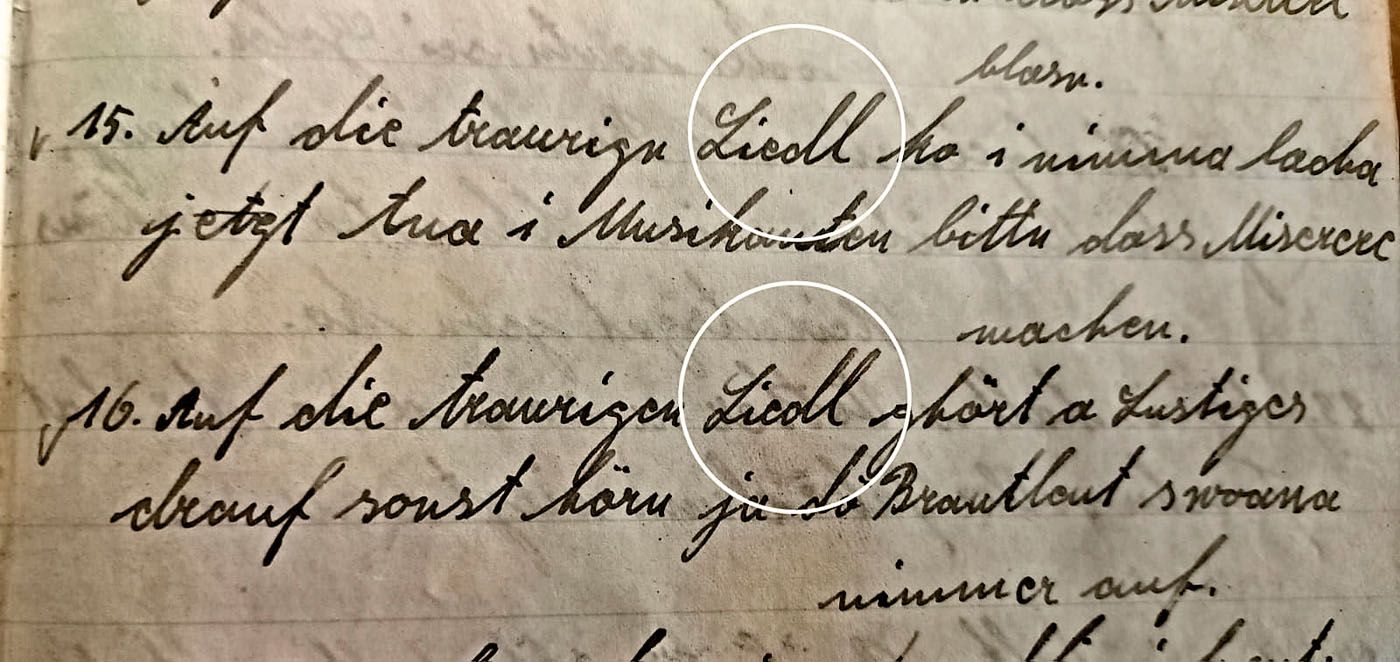 blasn.
15. Auf die traurign Liedl ko i nimma lacha
jetzt tua i Musikanten bittn dass Miserere
machen.
16. Auf die traurigen Liedl ghört a Lustiges
drauf sonst hörn ja dö Brautleut swoana
nimmer auf.